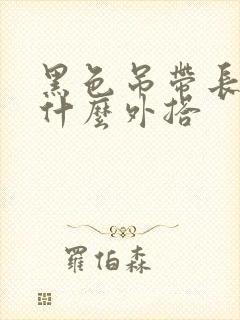 黑色吊帶長
什麼外搭
羅伯森